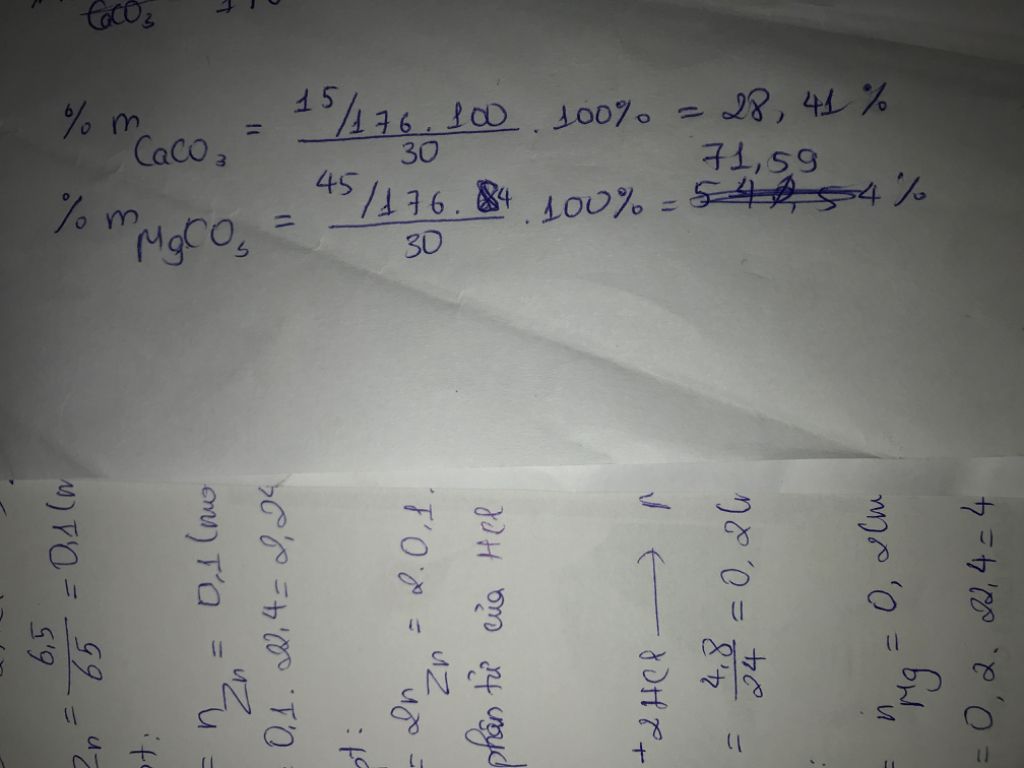 CaCO3
% m CaCO3 = 15/176 . 100 / 30 . 100% = 28,41 %
71,59
% m MgCO3 = 45/176 . 84 / 30 . 100% = %
Zn = 6,5 / 65 = 0,1 (m
= n Zn = 0,1 (mo
0,1 . 22,4 = 2,24
pt:
= 2n Zn = 2 . 0,1 .
phân tử của HCl
+ 2HCl ⟶
= 4,8 / 24 = 0,2 (
= n Mg = 0,2 (m
= 0,2 . 22,4 = 4